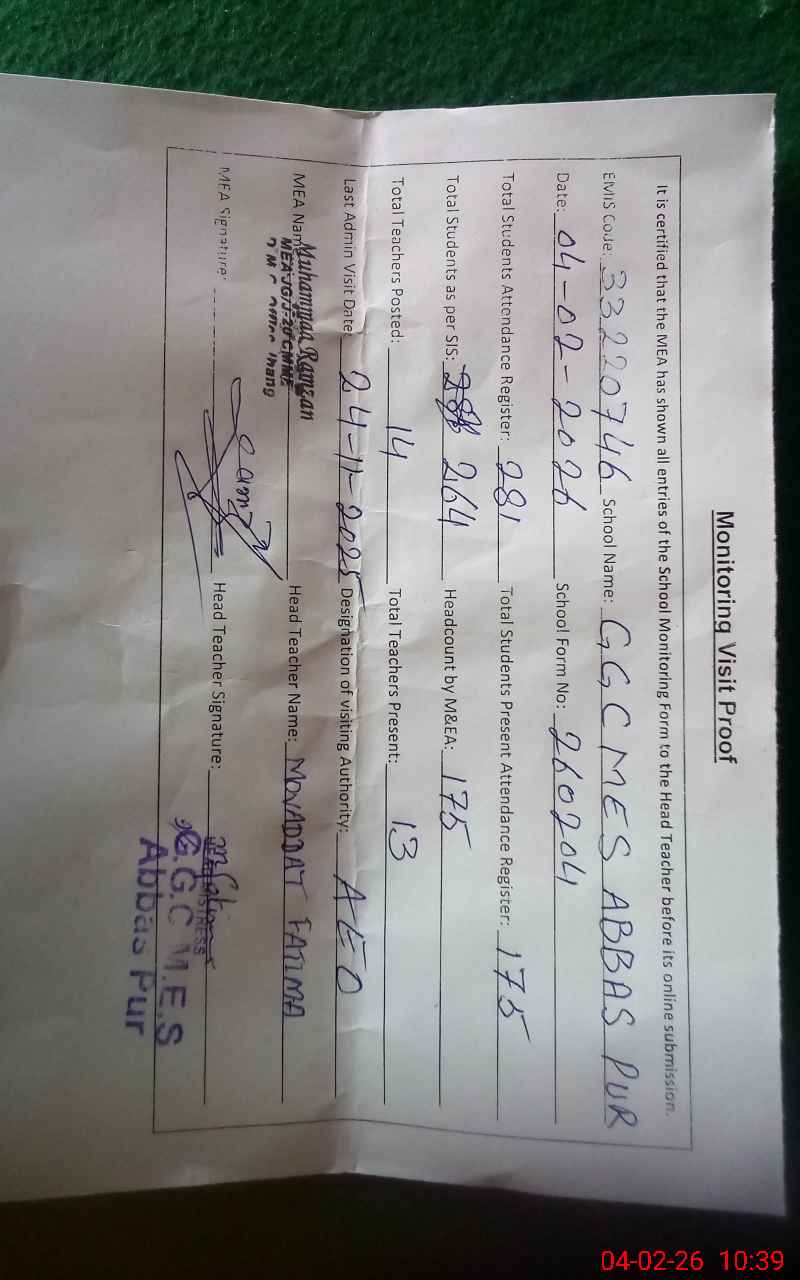 Monitoring Visit Proof
It is certified that the MEA has shown all entries of the School Monitoring Form to the Head Teacher before its online submission.
EMIS Code: 33220746 School Name: GGCMES ABBAS PUR
Date: 04-02-2026 School Form No: 260204
Total Students Attendance Register: 281 Total Students Present Attendance Register: 175
Total Students as per SIS: 264 Headcount by M&EA: 175
Total Teachers Posted: 14 Total Teachers Present: 13
Last Admin Visit Date: 24-11-2025 Designation of visiting Authority: AEO
MEA Name Muhammad Ramzan Head Teacher Name: MOVADDAT FATIMA
MEA Signature: Head Teacher Signature:
G.G.C M.E.S
Abbas Pur
04-02-26 10:39